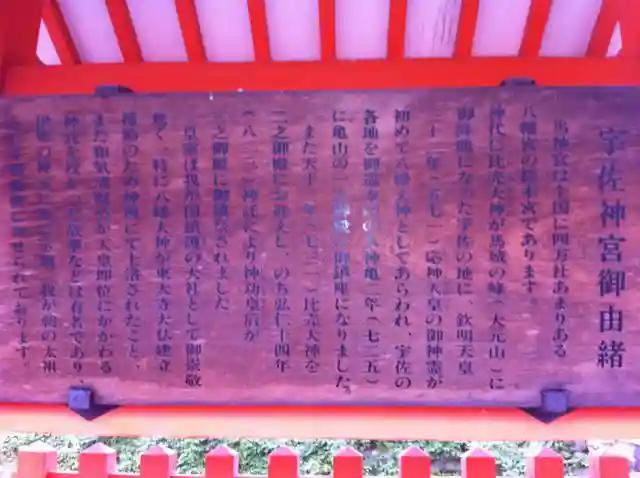 宇佐神宮御由緒
当神宮は全国に四万社あまりある
八幡宮の総本宮であります。
神代に比売大神が馬城の峰(大元山)に
御降臨になった宇佐の地に、欽明天皇
三十二年(五七一)応神天皇の御神霊が
初めて八幡大神としてあらわれ、宇佐の
各地を御巡幸 神亀二年(七二五)
に亀山の一之御殿に御鎮座になりました。
また天平 年(七三一)比売大神を
二之御殿にお迎えし、のち弘仁十四年
(八二三)神託により神功皇后が
三之御殿に御鎮座されました
皇室は我が国鎮護の大社として御崇敬
篤く、特に八幡大神が東大寺大仏建立
援助のため神輿にて上洛されたこと、
また和気清麻呂が天皇即位にかかわる
神託を授かった故事などは有名であり、
我が朝の太祖
せられております。